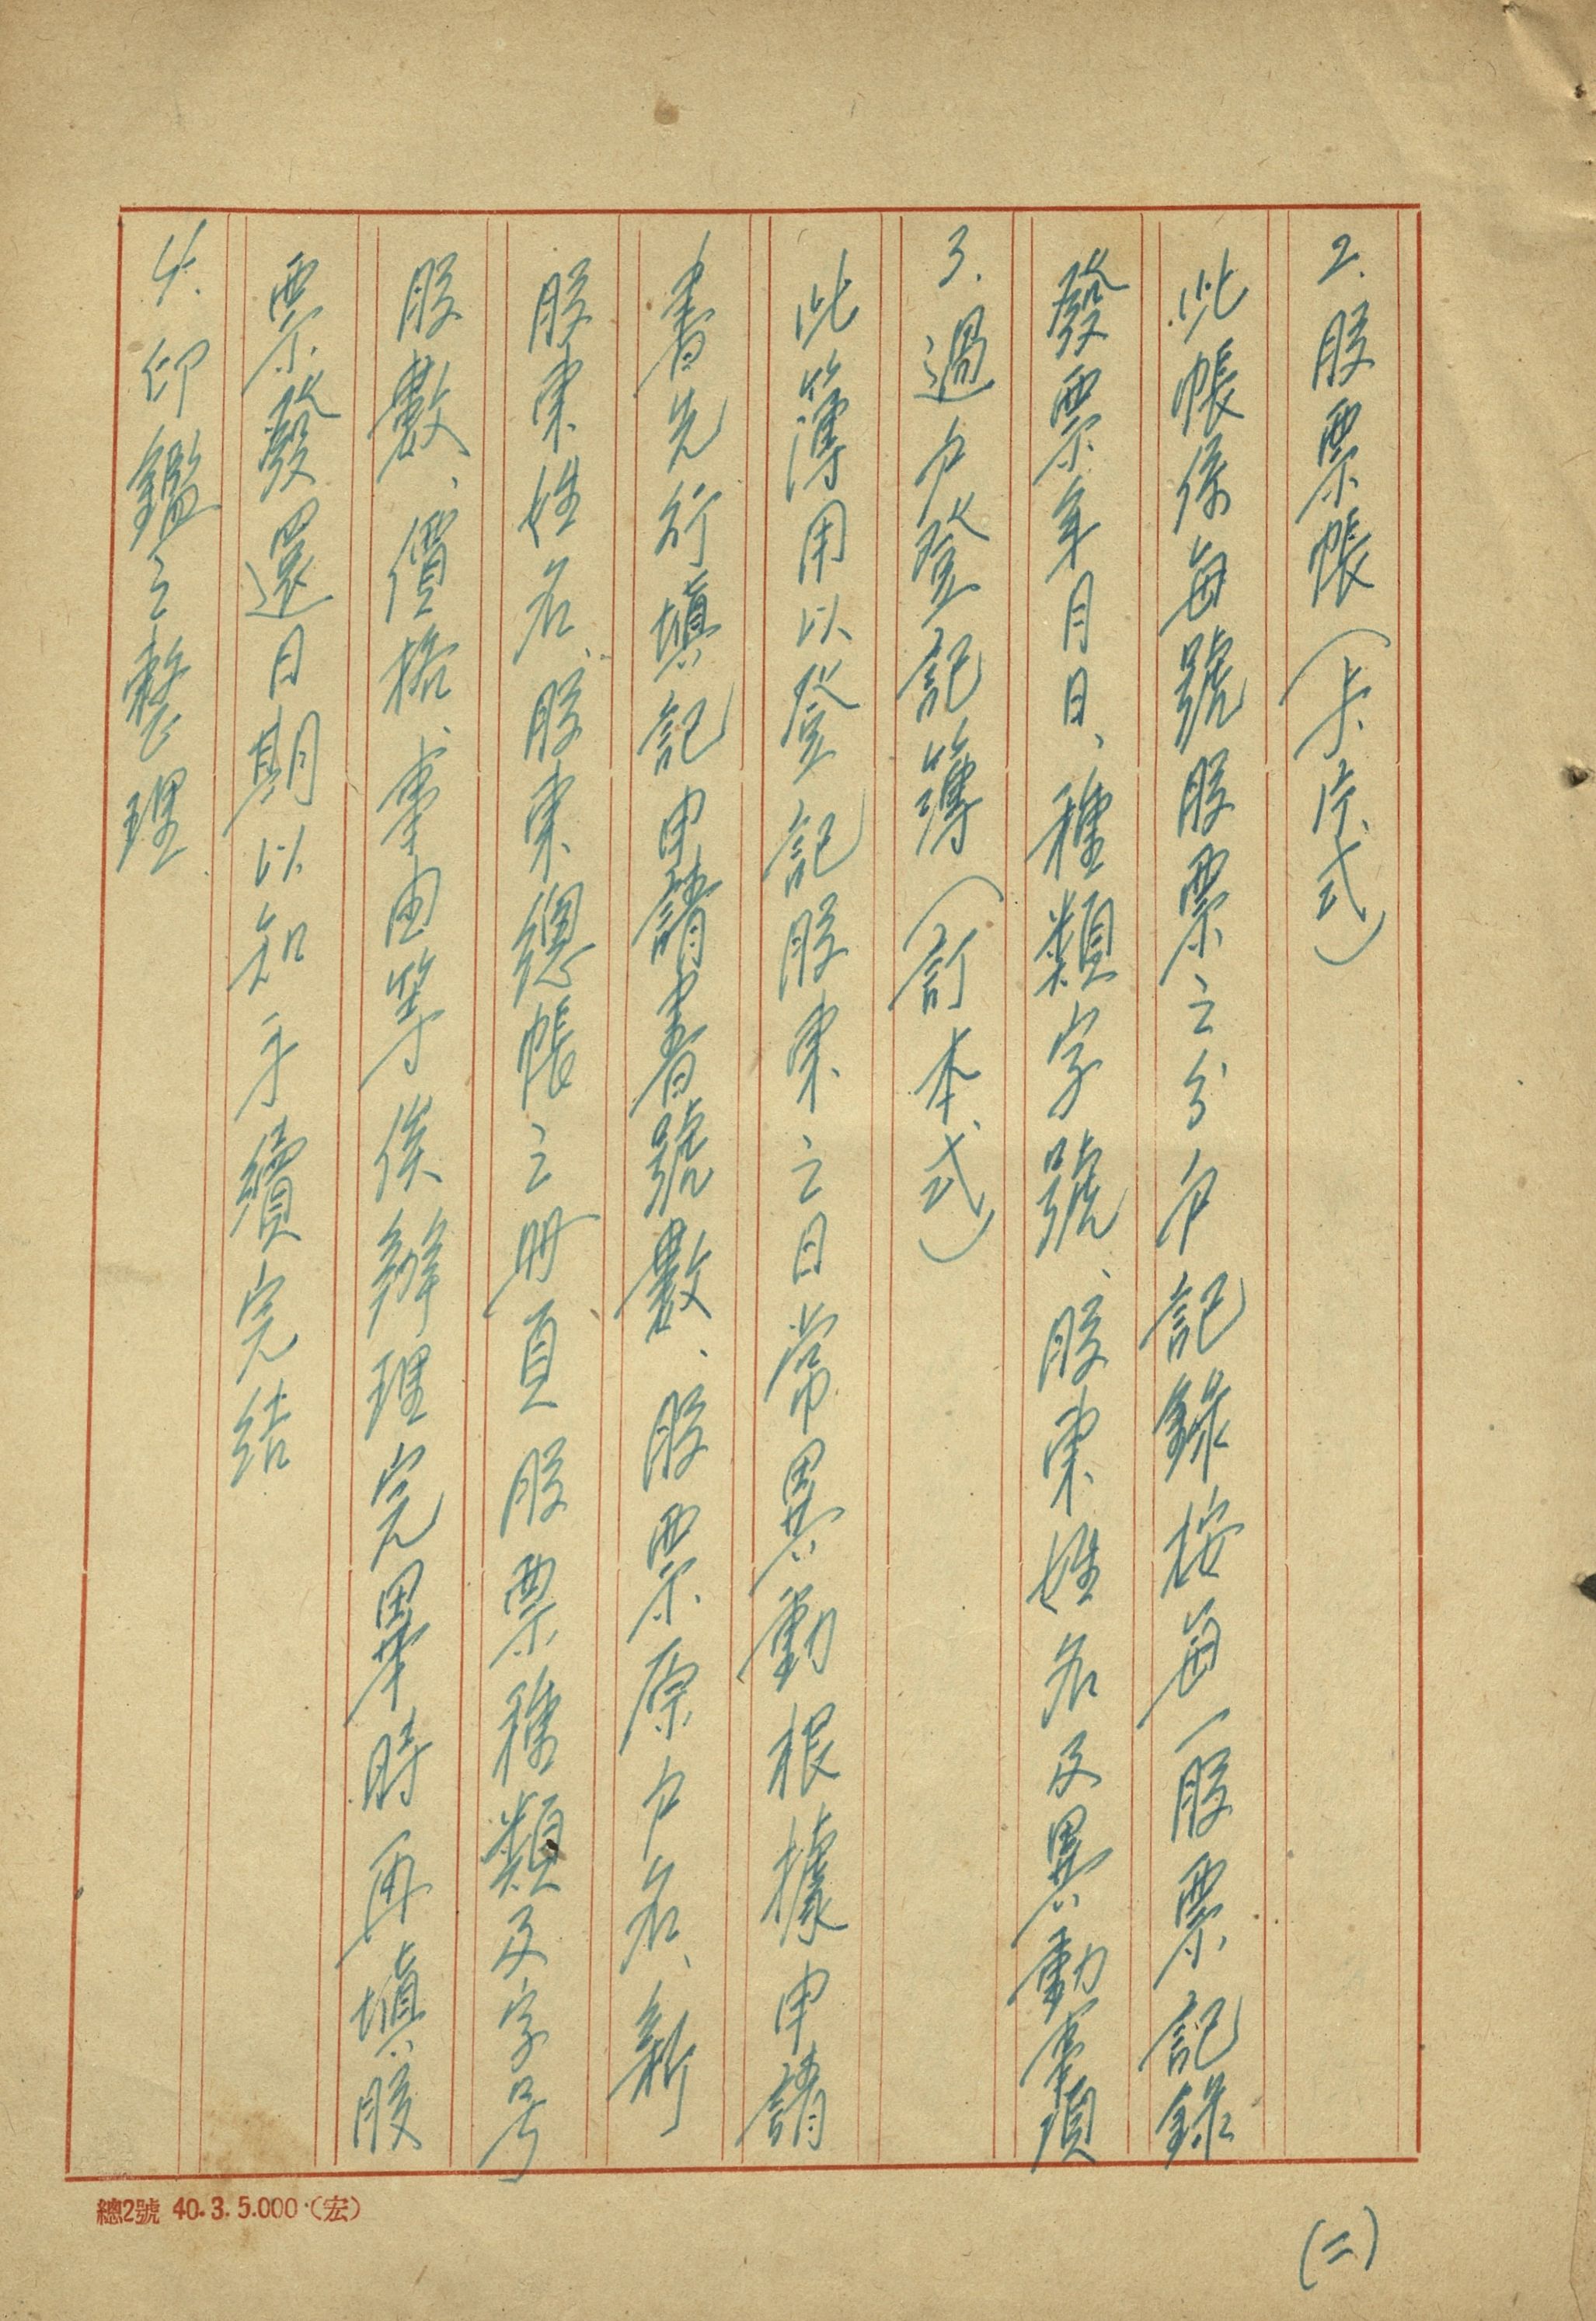 2.股票帳(卡片式)
此帳係每號股票之分戶記錄按每一股票記錄
發票年月日、種類字號、股東姓名及異動事項
3.過戶登記簿(訂本式)
此簿用以登記股東之日常異動根據申請
書先行填記申請書號數、股票原戶名、新
股東姓名、股東總帳之冊頁股票種類及字号
股數、價格、事由等俟辦理完畢時再填股
票發還日期以知手續完結
4.印鑑之整理
(二)
總2號 40.3.5.000.(宏)